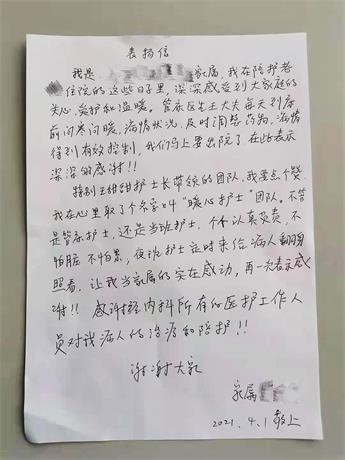 表扬信
我是 家属,我在陪护老
住院的这些日子里,深深感受到大家庭的
关心,爱护和温暖。管床医生王大夫每天到床
前问寒问暖,病情状况,及时调整药物,病情
得到有效控制,我们马上要出院了在此表示
深深的感谢!!
特别王甜甜护士长带领的团队,我要点个赞,
我在心里取了个名字叫“暖心护士”团队,不管
是管床护士,还是当班护士,个个认真负责,不
怕脏不怕累,夜班护士定时来给病人翻身
照看,让我当家属的实在感动,再一次表示感
谢!! 感谢 内科所有的医护工作人
员对我病人的治疗和陪护!!
谢谢大家
家属
2021.4.1 敬上